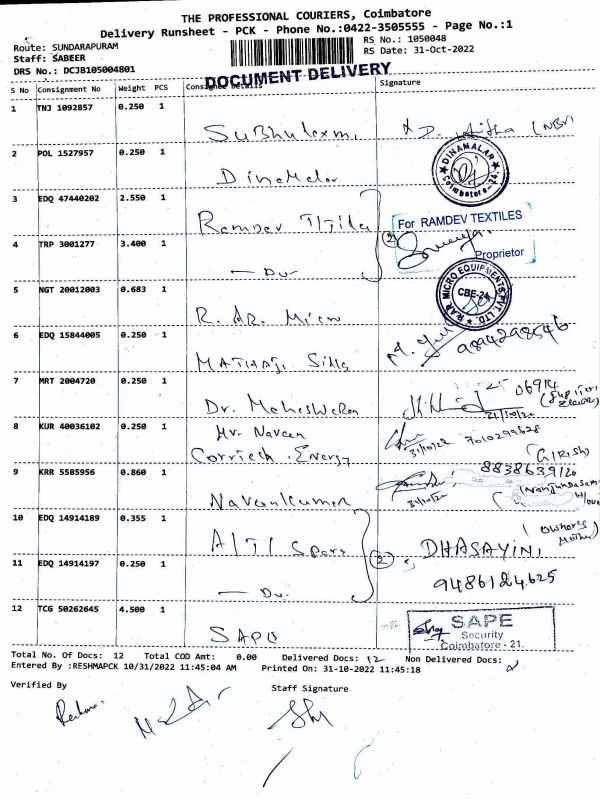 THE PROFESSIONAL COURIERS, Coimbatore
Delivery Runsheet - PCK - Phone No.:0422-3505555 - Page No.:1
Route: SUNDARAPURAM
RS No.: 1050048
Staff: SABEER
RS Date: 31-Oct-2022
DRS No.: DCJB105004801
DOCUMENT DELIVERY
S No Consignment No Weight PCS Consignee Details Signature
1 TNJ 1092857 0.250 1
Subhulaxmi
2 POL 1527957 0.250 1
DINAMALAR
Coimbatore-24
Dinamalar
3 EDQ 47440202 2.550 1
Ramdev
For RAMDEV TEXTILES
4 TRP 3001277 3.400 1
2
Proprietor
- Do -
5 NGT 20012003 0.683 1
RAR MICRO EQUIPMENTS PVT. LTD.
CBE-24
R. AR. Micro
6 EDQ 15844005 0.250 1
9894298546
MATHAJI
7 MRT 2004720 0.250 1
06914
Dr. Maheswaran
8 KUR 40036102 0.250 1
Mr. Naveen
31/10/22 7010299628
Energy
(GIRISH)
9 KRR 5585956 0.860 1
8838639120
Naveenkumar
31/10/22
10 EDQ 14914189 0.355 1
(owner's Mother)
2 DHASAYINI
11 EDQ 14914197 0.250 1
- Do -
9486124625
12 TCG 50262645 4.500 1
SAPE
Security
Coimbatore - 21.
Total No. Of Docs: 12 Total COD Amt: 0.00 Delivered Docs: 12 Non Delivered Docs:
Entered By :RESHMAPCK 10/31/2022 11:45:04 AM Printed On: 31-10-2022 11:45:18
Verified By
Staff Signature